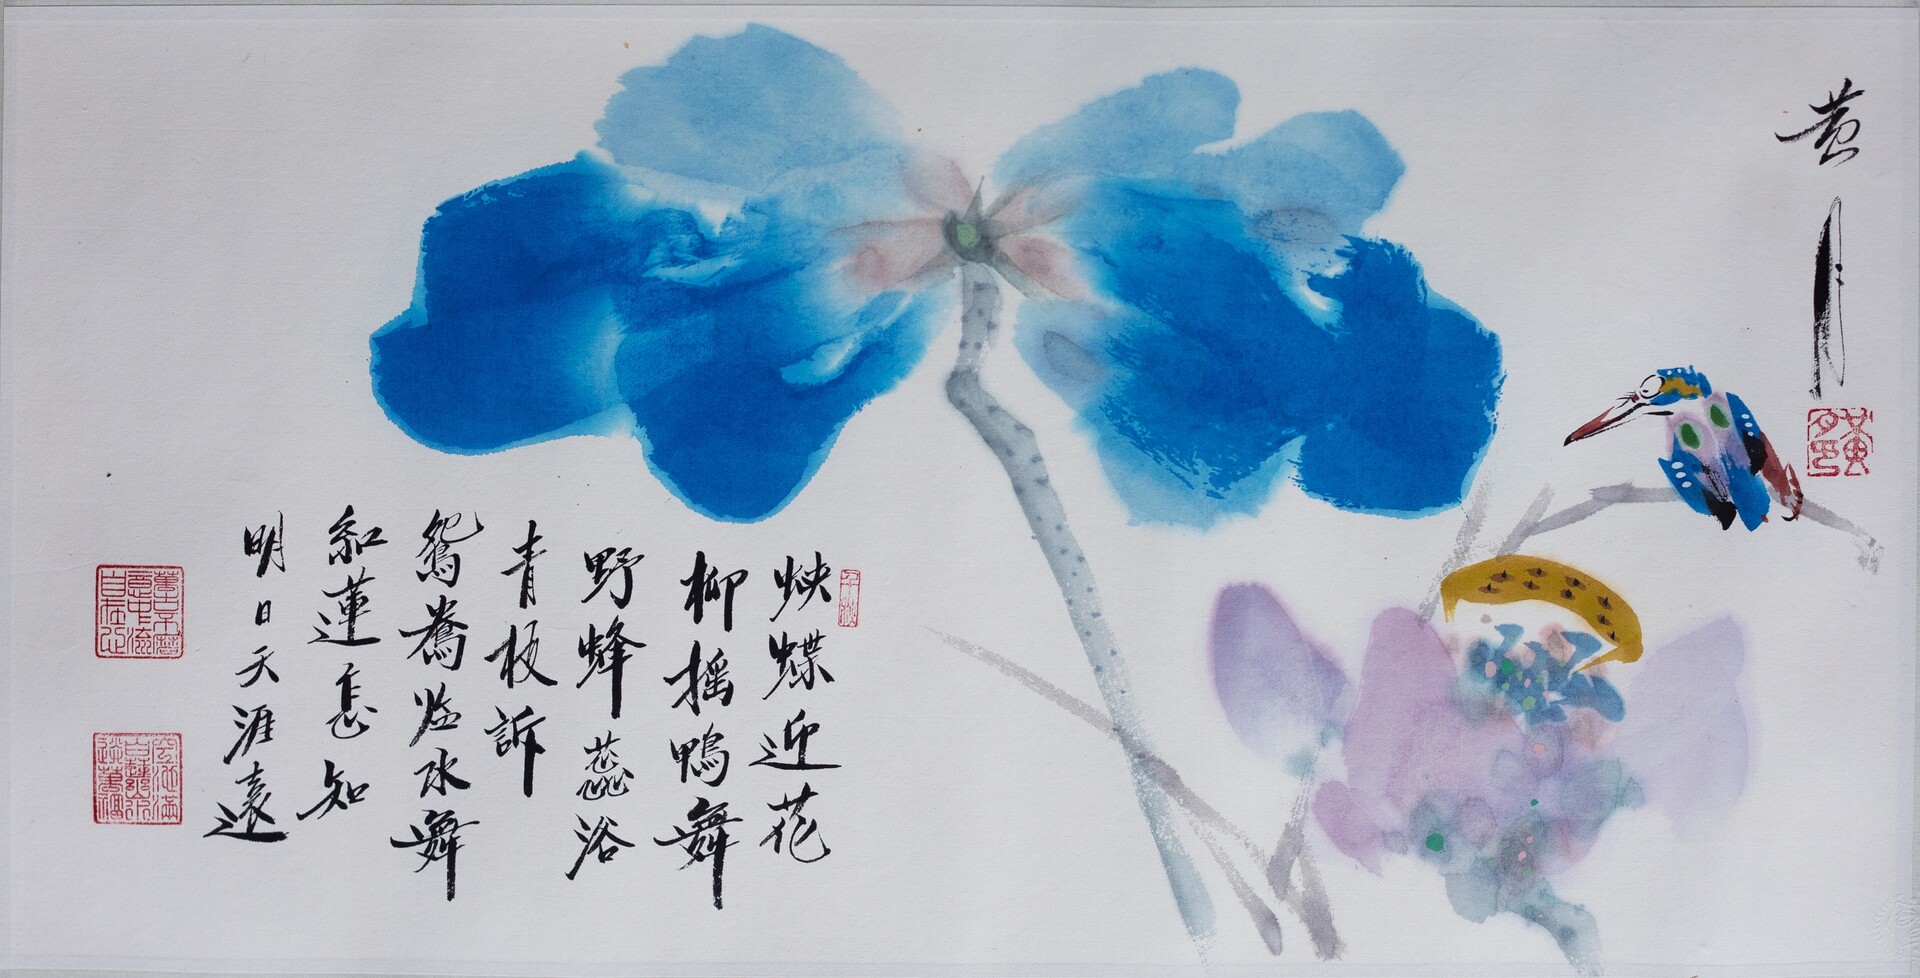 黄月
蛱蝶迎花
柳摇鴨舞
野蜂蕊浴
青枝訴
鴛鴦临水舞
紅蓮怎知
明日天涯遠